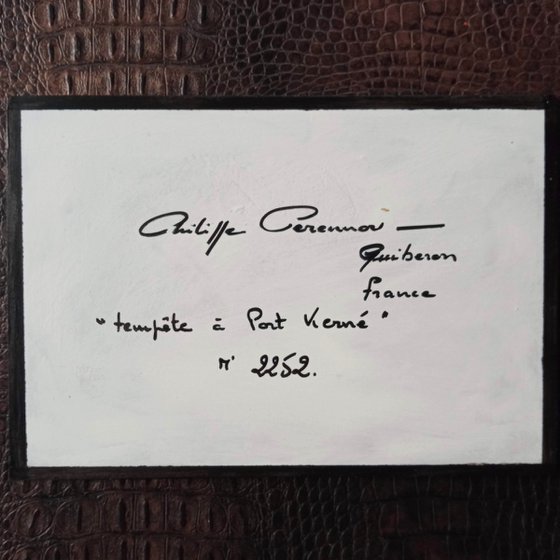 Philippe Perennou —
Quiberon
France
"tempête à Port Kerné"
N° 2252.